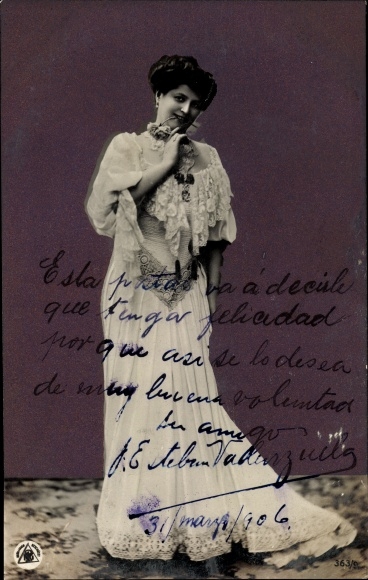 Esta postal va á decirle
que tenga felicidad
porque asi se lo desea
de muy buena voluntad
su amigo
J. Esteban Valenzuela
31/marzo/906.
363/6